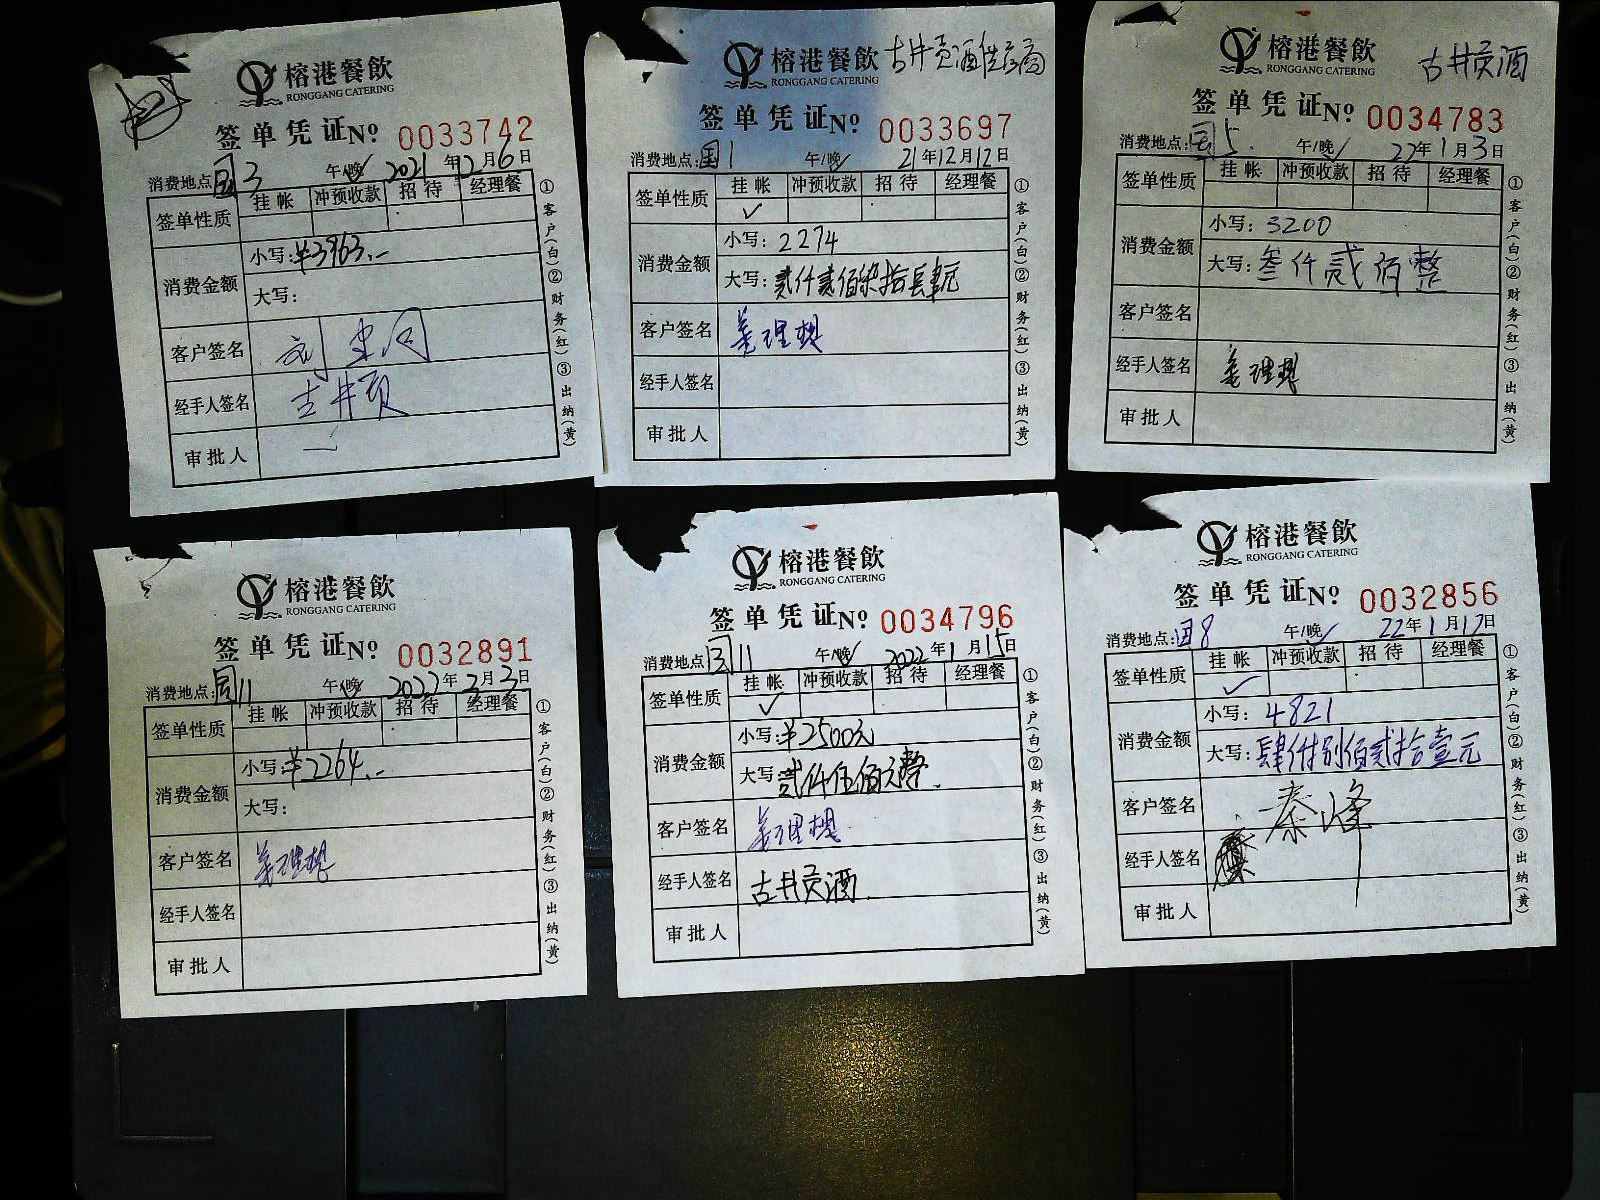 榕港餐飲
RONGGANG CATERING
签单凭证 Nº 0033742
消费地点: 国3 午/晚✓ 2021年12月6日
签单性质 挂帐 冲预收款 招待 经理餐
消费金额 小写: ¥3963.-
大写:
客户签名 刘
经手人签名 古井贡
审批人
①客户(白)②财务(红)③出纳(黄)
榕港餐飲 古井贡酒
RONGGANG CATERING
签单凭证 Nº 0033697
消费地点: 国1 午/晚✓ 21年12月12日
签单性质 挂帐 冲预收款 招待 经理餐
✓
消费金额 小写: 2274
大写: 贰仟贰佰柒拾肆元
客户签名 姜理想
经手人签名
审批人
①客户(白)②财务(红)③出纳(黄)
榕港餐飲 古井贡酒
RONGGANG CATERING
签单凭证 Nº 0034783
消费地点: 国5. 午/晚✓ 22年1月3日
签单性质 挂帐 冲预收款 招待 经理餐
消费金额 小写: 3200
大写: 叁仟贰佰整
客户签名
经手人签名 姜理想
审批人
①客户(白)②财务(红)③出纳(黄)
榕港餐飲
RONGGANG CATERING
签单凭证 Nº 0032891
消费地点: 国11 午/晚✓ 2022年2月3日
签单性质 挂帐 冲预收款 招待 经理餐
消费金额 小写: ¥2264.-
大写:
客户签名 姜理想
经手人签名
审批人
①客户(白)②财务(红)③出纳(黄)
榕港餐飲
RONGGANG CATERING
签单凭证 Nº 0034796
消费地点: 国11 午/晚✓ 2022年1月15日
签单性质 挂帐 冲预收款 招待 经理餐
✓
消费金额 小写: ¥2500元
大写: 贰仟伍佰元整.
客户签名 姜理想
经手人签名 古井贡酒.
审批人
①客户(白)②财务(红)③出纳(黄)
榕港餐飲
RONGGANG CATERING
签单凭证 Nº 0032856
消费地点: 国8 午/晚✓ 22年1月17日
签单性质 挂帐 冲预收款 招待 经理餐
✓
消费金额 小写: 4821
大写: 肆仟捌佰贰拾壹元
客户签名 秦峰
经手人签名
审批人
①客户(白)②财务(红)③出纳(黄)